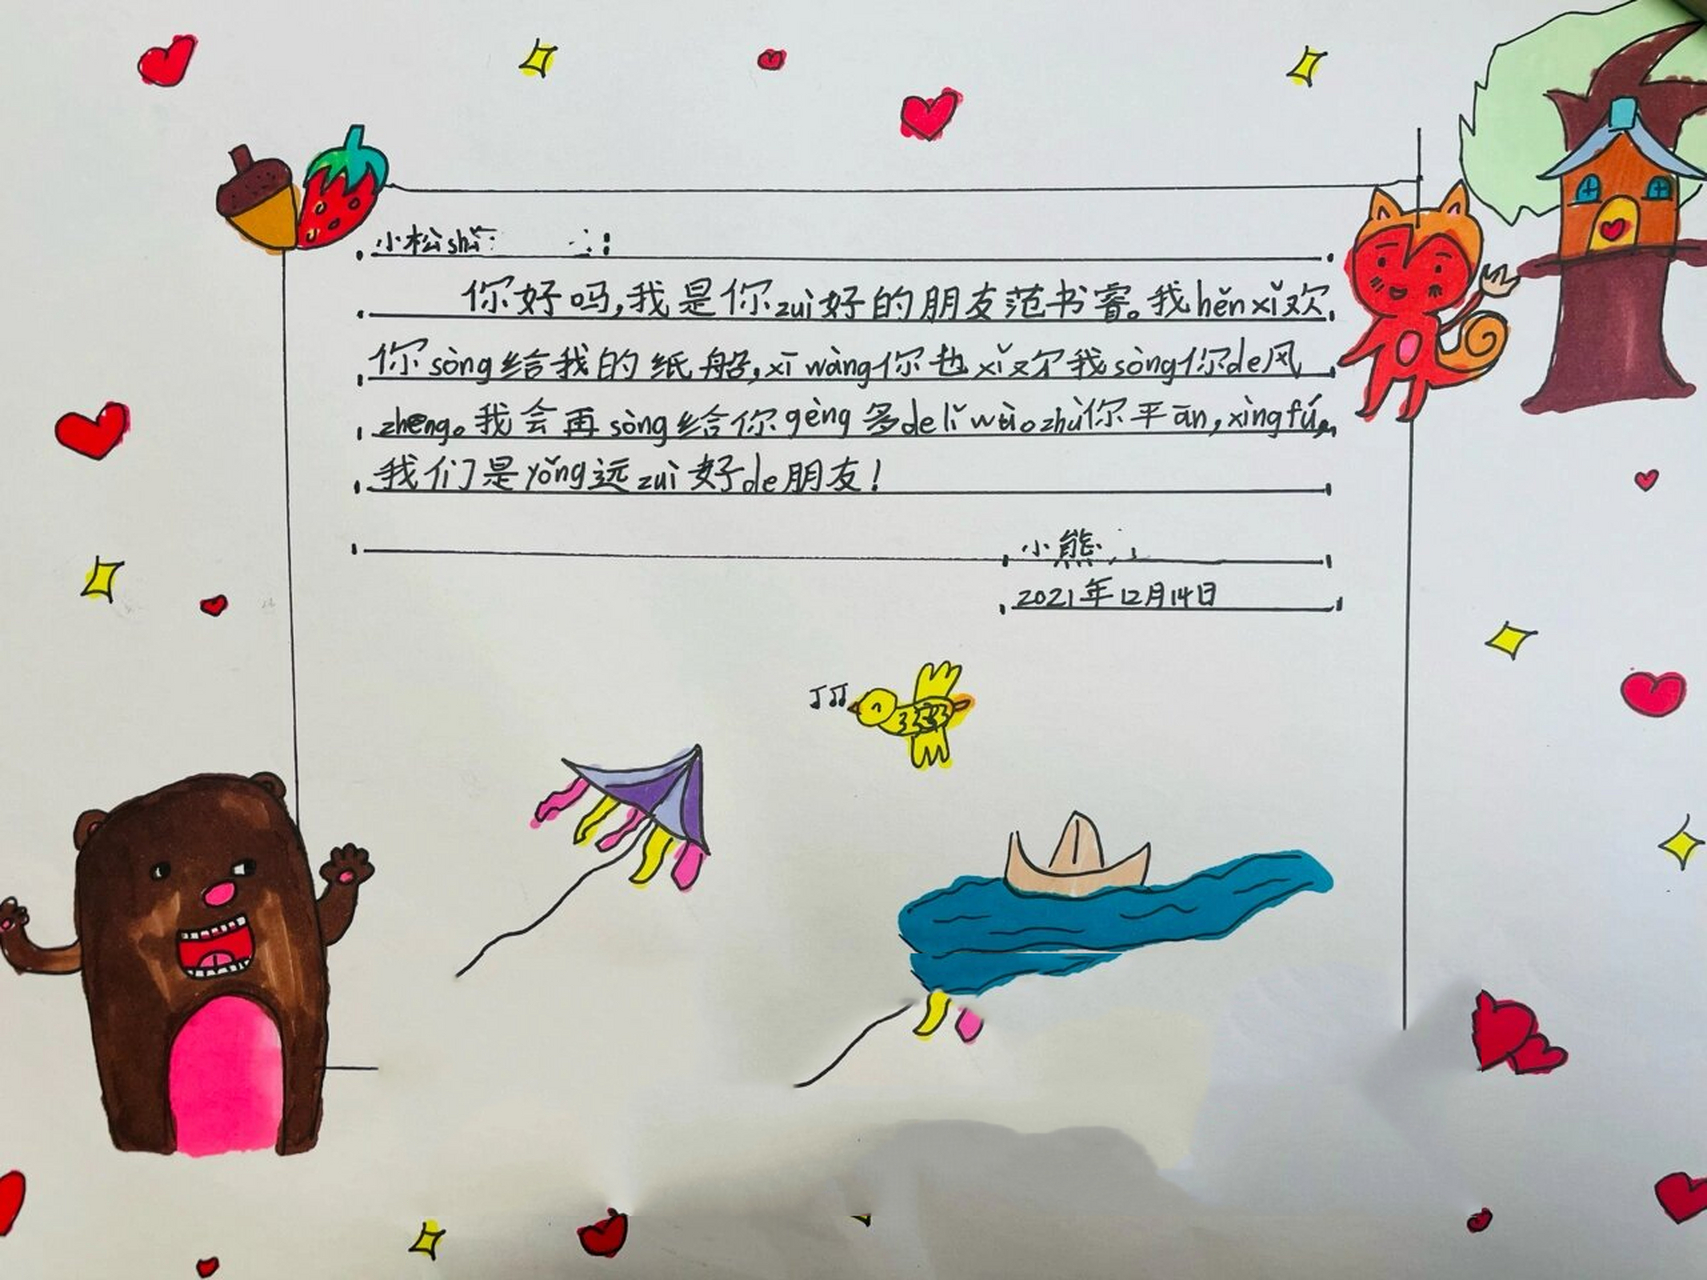 小松shǔ:
你好吗,我是你zuì好的朋友范书睿。我hěn xǐ欢
你sòng给我的纸船,xī wàng你也xǐ欢我sòng你de风
zheng。我会再sòng给你gèng多de lǐ wù。zhù你平ān,xìng fú。
我们是yǒng远zuì好de朋友!
小熊
2021年12月14日